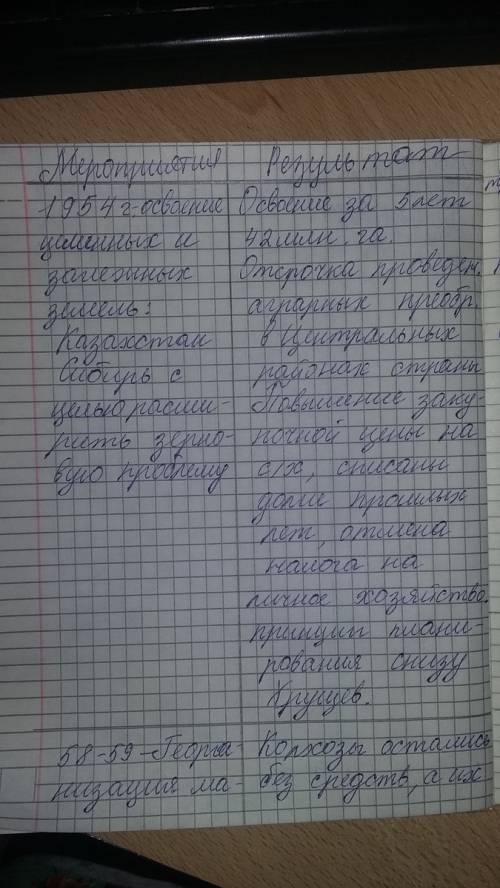 Мероприятия Результат
1954 г-освоение Освоение за 5 лет
целинных и 42 млн. га.
залежных Отсрочка проведен.
земель: аграрных преобр.
Казахстан в Центральных
Сибирь с районах страны
целью расши- Повышение заку-
рить зерно- почной цены на
вую проблему с/х, списаны
долги прошлых
лет, отмена
налога на
личное хозяйство.
принцип плани-
рования снизу
Хрущев.
58-59- Колхозы остались
низация ма- без средств, а их